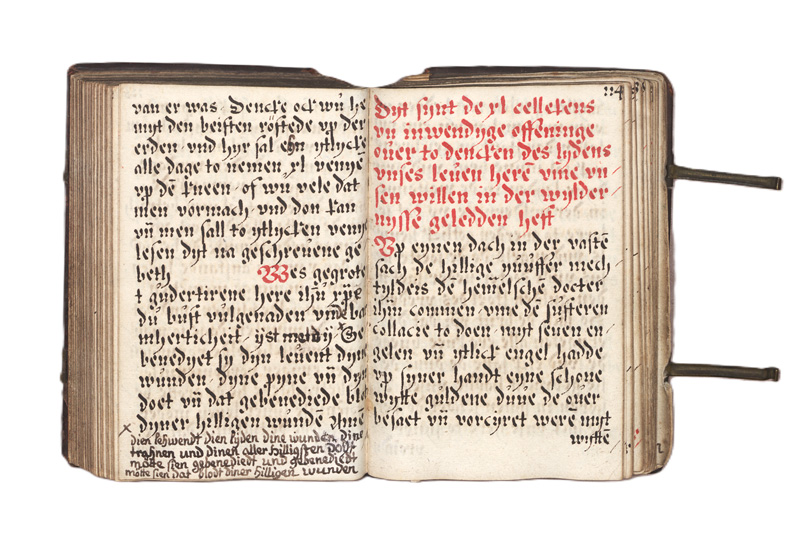 van er was · Dencke ock wu he
myt den beisten röstede vp der
erden · vnd hyr sal ehn ytlycke
alle dage to nemen xl venyen
vp dē kneen · of wu vele dat
men vormach · vnd don kan
vn̄ men sall to ytlycken veny
lesen dyt na geschreuene ge
beth Wes gegrote
t gudertirene here ihū xp̄e
du bust vulgenaden vnde ba
mhertichert · ÿst
benedyet sy dyn leuent dyn
wunden · dyne pyne vn̄ dyn
doet vn̄ dat gebenediede blo
dyner hilligen wundē dyne
x dien schwendt dien lyden dine wunden, dine
trahnen und dinen aller hilligsten Dodt
motte sien gebenediedt und gebenediedt
motte sien dat blodt diner hilligen wunden
114
Dyt synt de xl cellekens
vn̄ inwendyge offeninge
ouer to dencken des lydens
vnses leuen herē vme vn
sen willen in der wylder
nysse geledden heft
Vp eynen dach in der vastē
sach de hillige yūuffer mech
tylders de hēmelsche docter
ihm commen · vme dē susteren
collacie to doen · myt seuen en
gelen vn̄ ytlick engel hadde
vp syner handt eyne schone
wytte guldene duue de ouer
besaet vn̄ vorcyret werē myt
wyttē